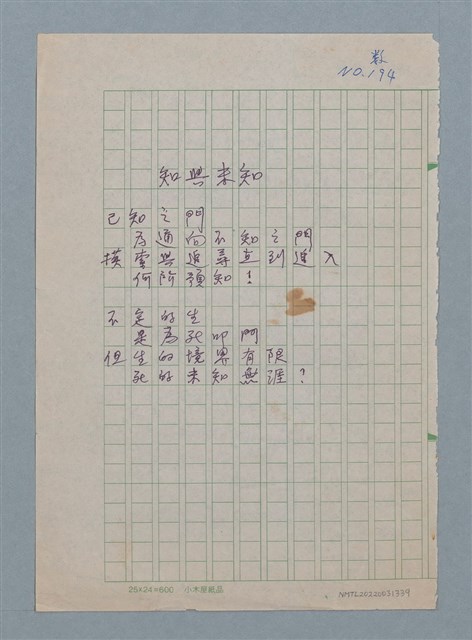 数
NO.194
知與未知
已知之門
為通向不知之門
摸索與追尋直到進入
何所預知!
不定的生
是為死叩門
但生的境界有限
死的未知無涯?
25×24=600 小木屋紙品
NMTL20220031339